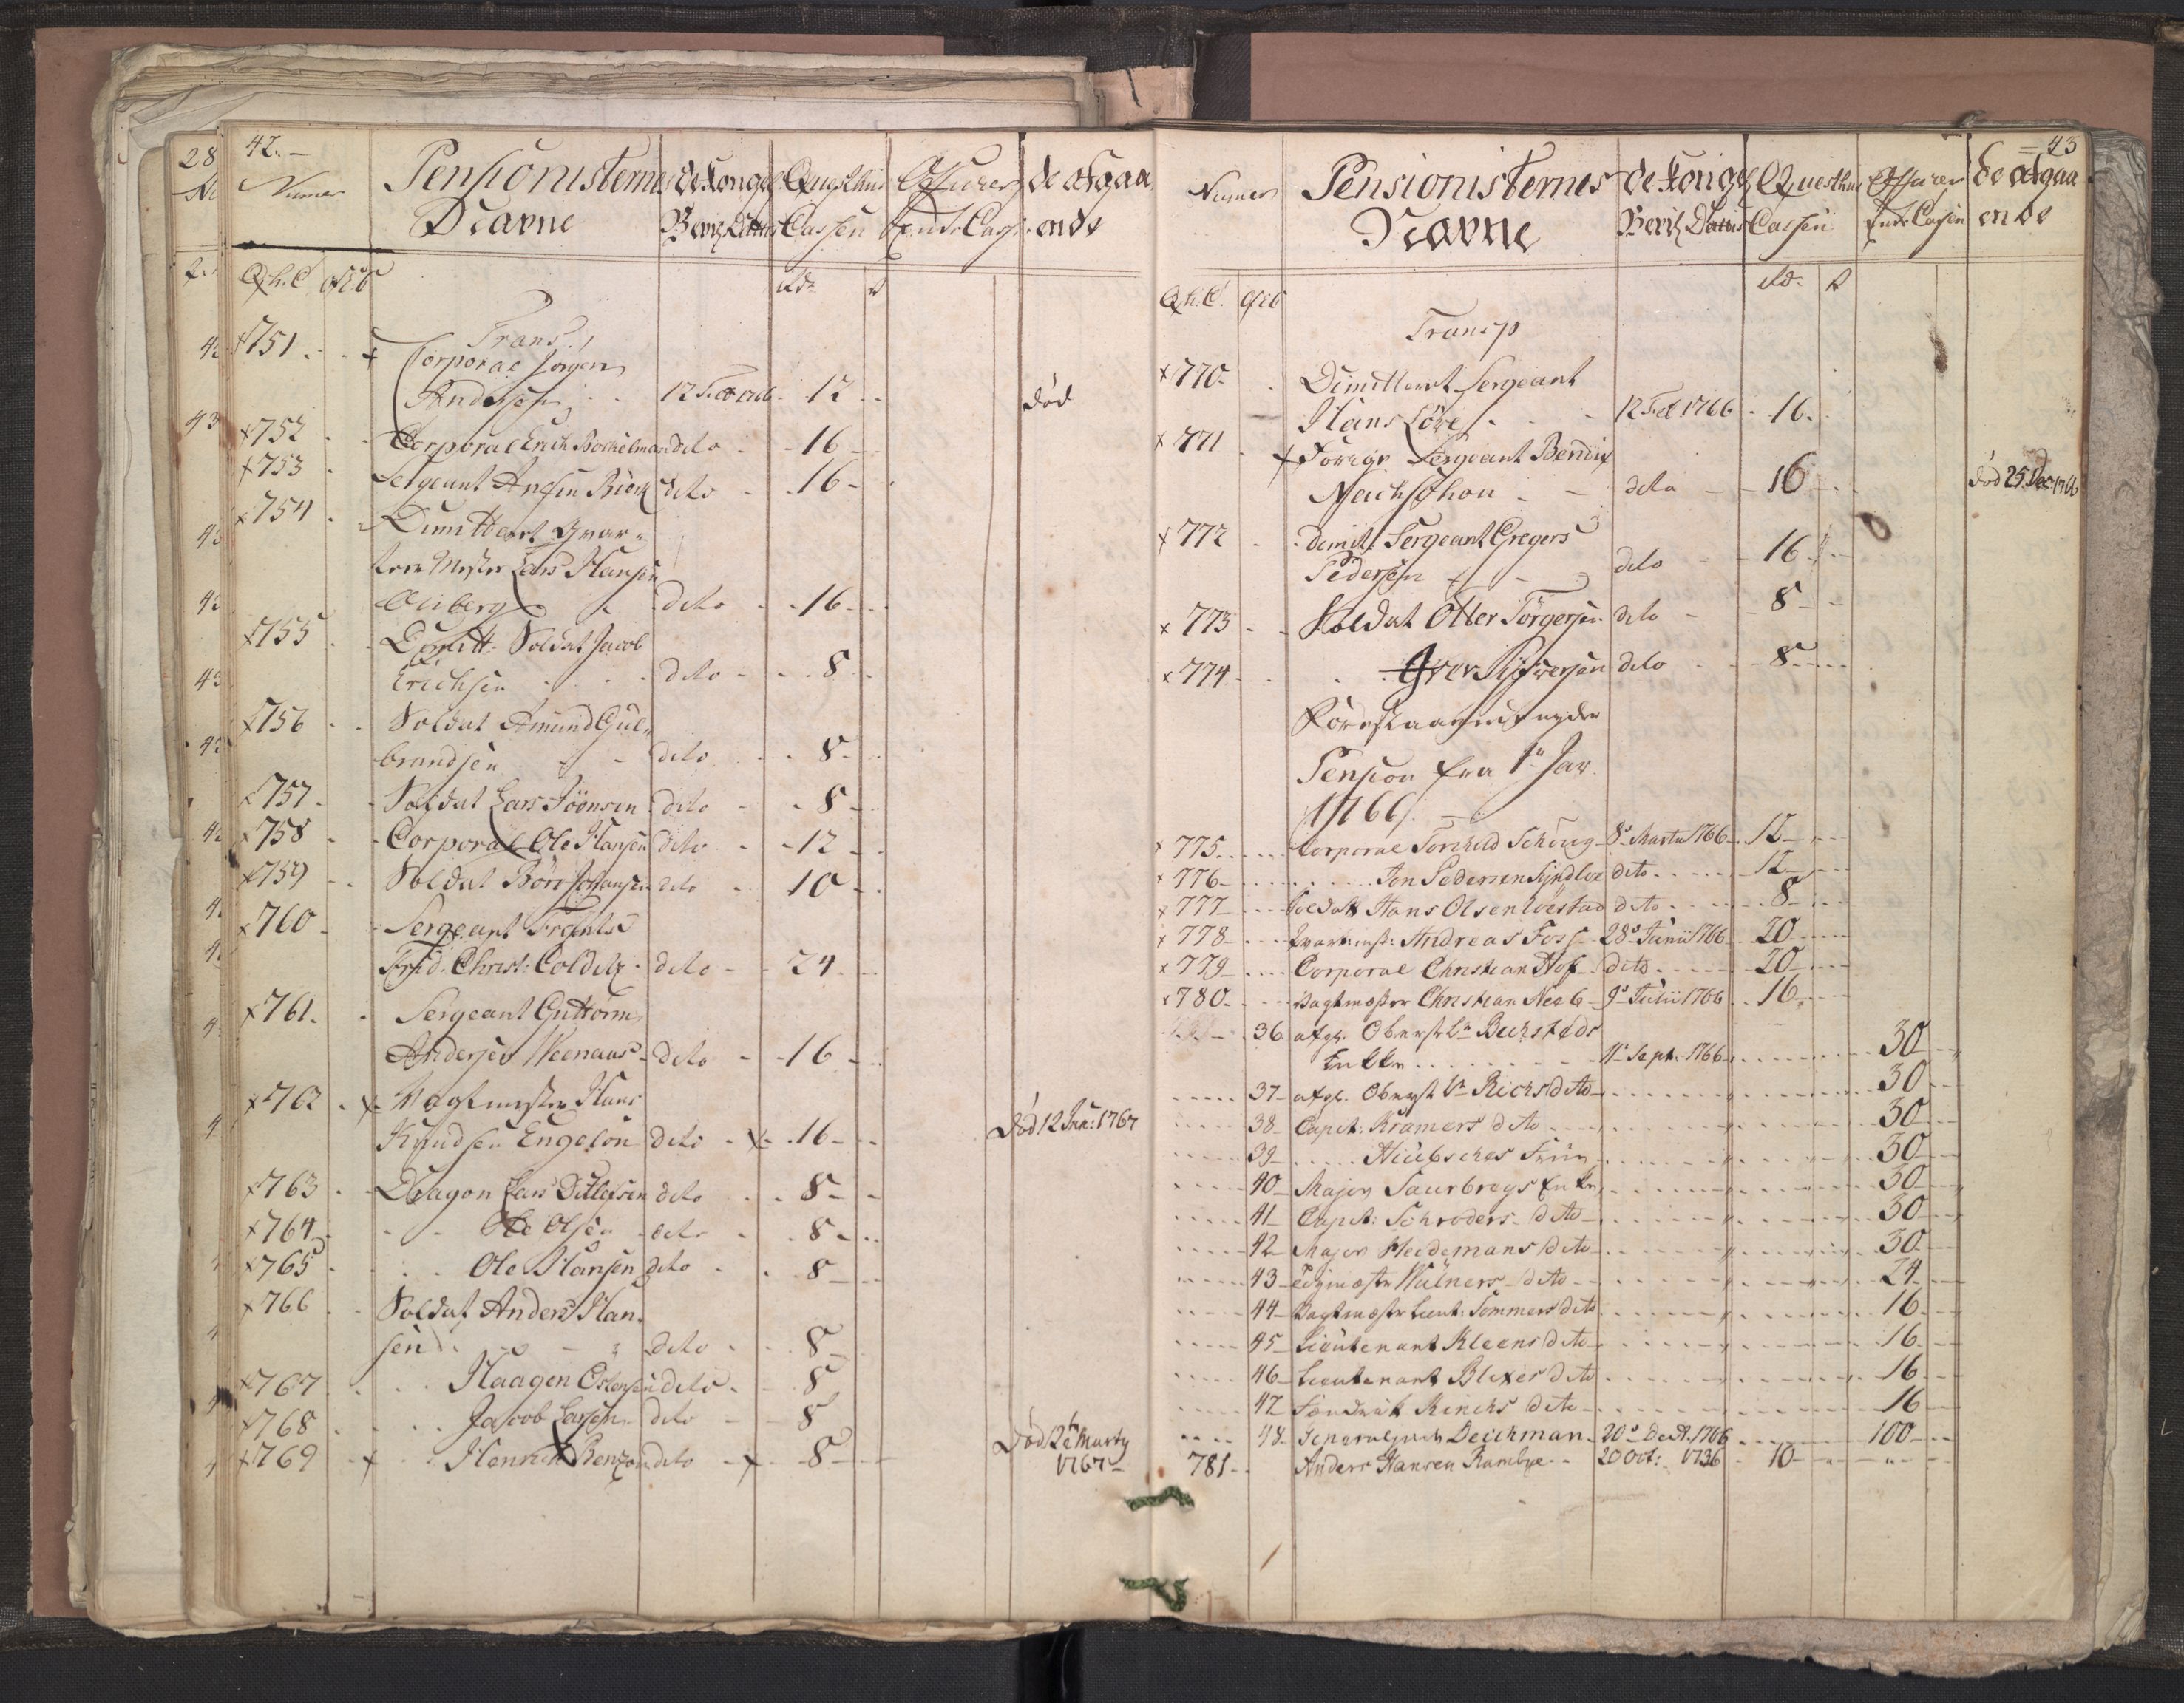 42.
Numer
Pensionisternes
Navne
de Kongel
Bevilg Datus
Questhus
Cassen
Officerer
Enke Casse
de afgaa
ende
Q.h.C
Rdr
Transp
751
Corporal Jørgen
Andersen
12
død
752
Corporal Erich Bockelman dito
16
753
Sergeant Ansen Biørk dito
16
754
Dimittert Qvar
teer Mester Lars Hansen
dito
16
755
Dimitt. Soldat Jacob
Erichsen dito
8
756
Soldat Amund Gul
brandsen dito
8
757
Soldat Lars Jöensen dito
8
758
Corporal Ole Hansen dito
12
759
Soldat Børe Johansen dito
10
760
Sergeant Frantz
Frid. Christ: Colditz dito
24
761.
Sergeant Guttorm
Andersen dito
16
762
Vagtmester Hans
Knudsen Engelon dito
16
Död 12 Jan: 1767
763
Dragon Lars Ditlefsen dito
8
764
Ole Olsen dito
8
765
Ole Hansen dito
8
766
Soldat Anders Han
sen dito
8
767
Haagen Ostensen dito
8
768
Jacob Larsen dito
8
769
Henrich Bentzon dito
8
Død 26 Marty
1767
43
Numer
Pensionisternes
Navne
de Kongel
Bevilg Datus
Questhus
Cassen
Officerer
Enke Casse
de afgaa
ende
Q.h.C.
Rdr
Transp
770
Dimittert Sergeant
Hans Löve
12 Feb 1766
16
771
Sergeant Bendix
dito
16
død 25 Dec 1766
772
dimit: Sergeant Gregers
Pedersen dito
16
773
Soldat Otter Törgersen dito
8
774
dito
8
Forestaaende nyder
Pension fra 1te Jar
1766.
775
Corporal Torchild Schöug 8de Martii 1766
12
776
Jon Pedersen dito
12
777
Soldatt Hans Olsen dito
8
778
Qvarteermest: Andreas Foss 28de Junii 1766
20
779
Corporal Christian Hof dito
20
780
Vagtmester Christian Neeb 9de Julii 1766
16
36
afg. Oberstlt Bechsteds
Enke 11te Sept. 1766
30
37
afg. Oberstlt Riechs dito
30
38
Capit: Kramers dito
30
39
Hiübsches Frue
30
40
Major Saurbreys Enke
30
41
Capit: Schroders dito
30
42
Major Heedemans dito
30
43
Wülners dito
24
44
Vagtmester Lieut: Sommers dito
16
45
Lieutenant Kleens dito
16
46
Lieutenant Blixes dito
16
47
Fendrik Rincks dito
16
48
Deichman 20de Dec 1766
100
781
Anders Hansen Rambye
20 Oct: 1736
10